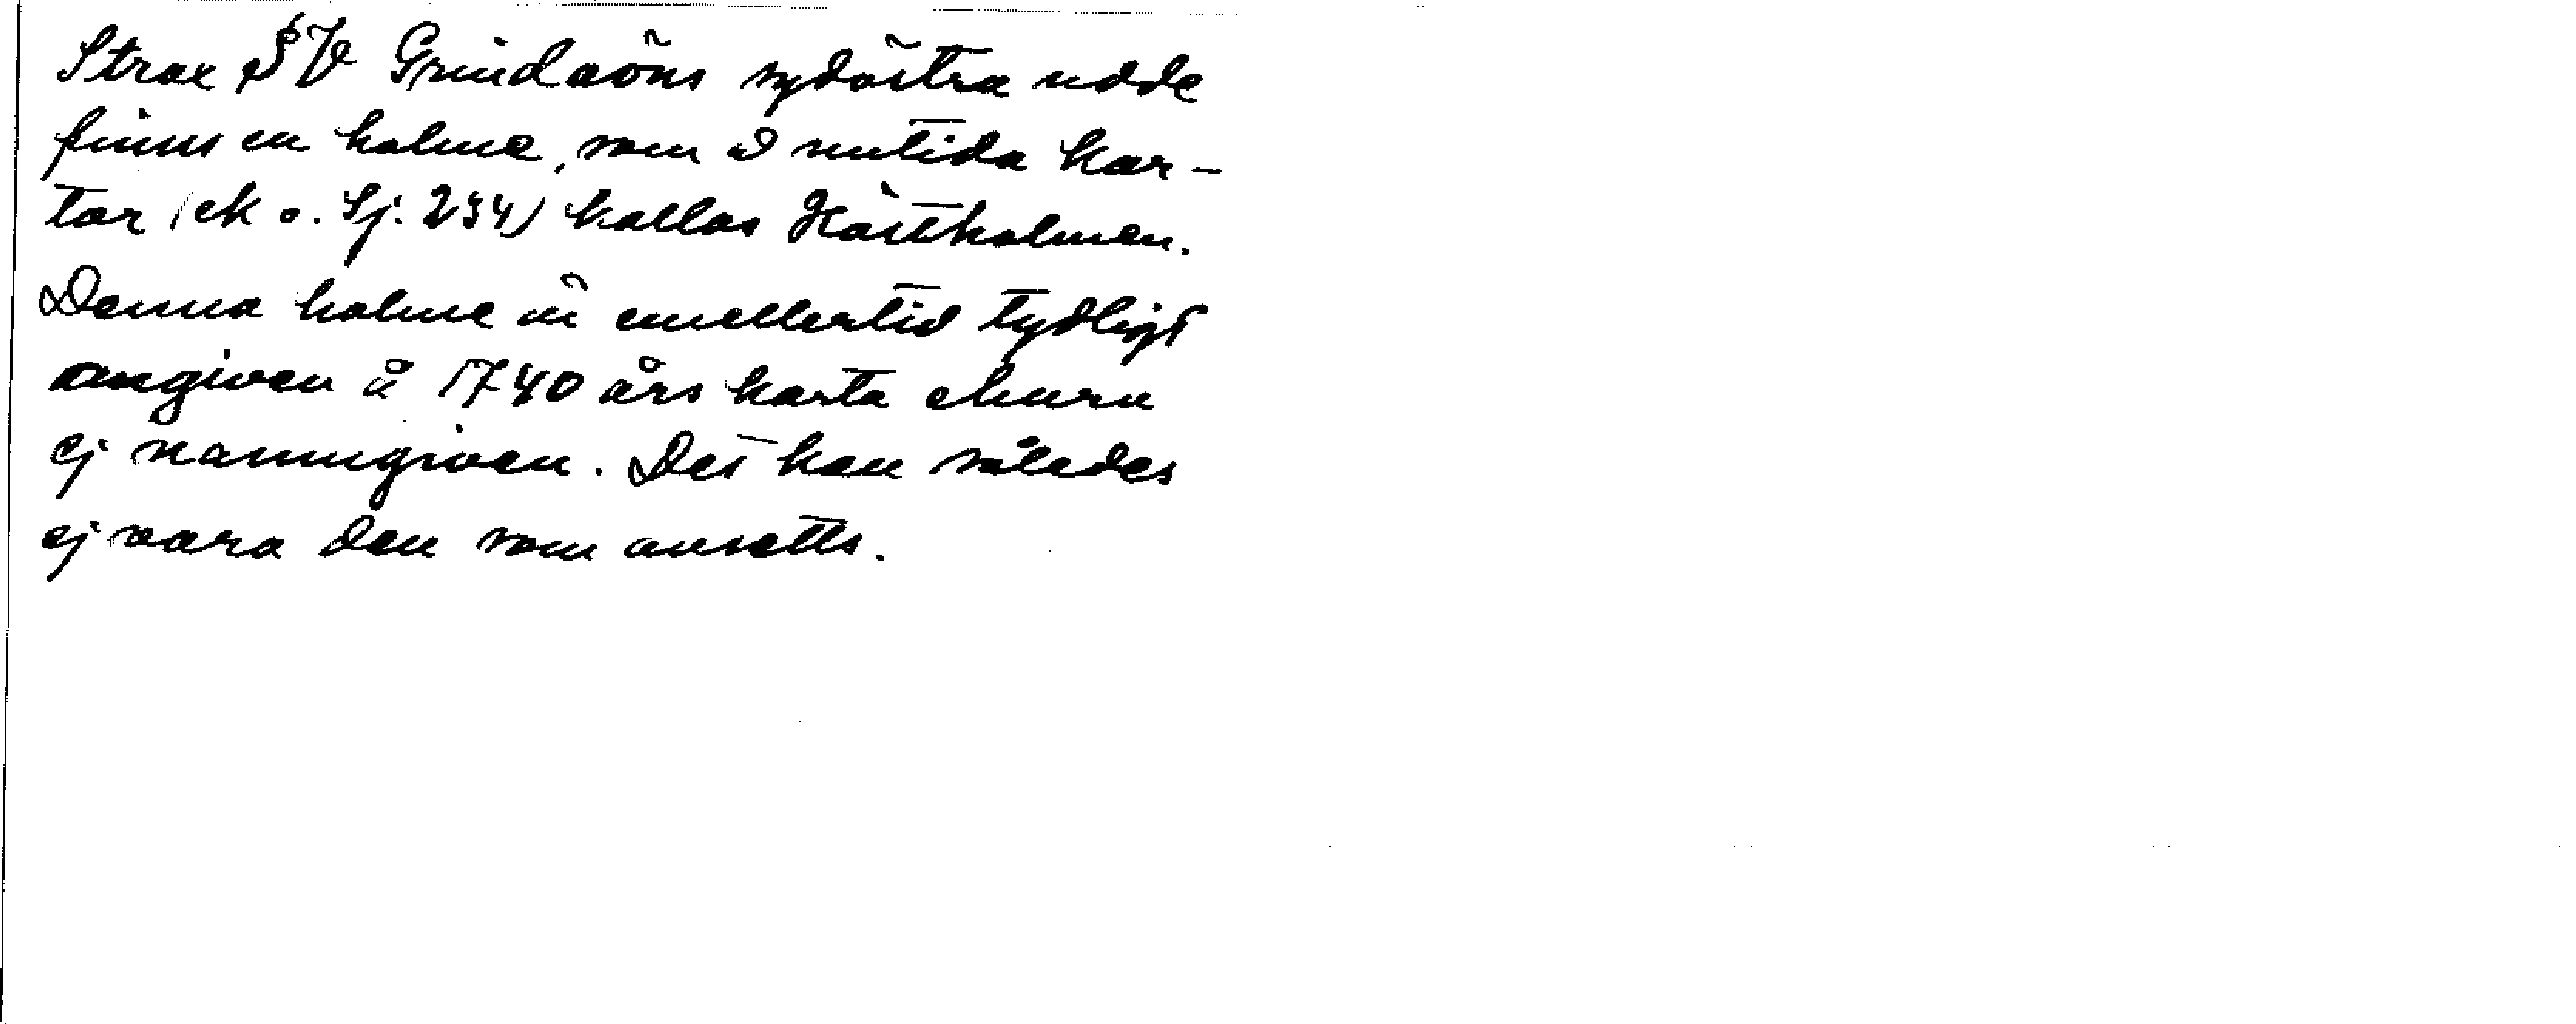 Strax SV Grindaöns sydöstra udde
finns en holme, som å nutida kar-
tor (ek o. Sj. 234) kallas Hästholmen.
Denna holme är emellertid tydligt
angiven å 1740 års karta ehuru
ej namngiven. Det kan således
ej vara den som avsetts.